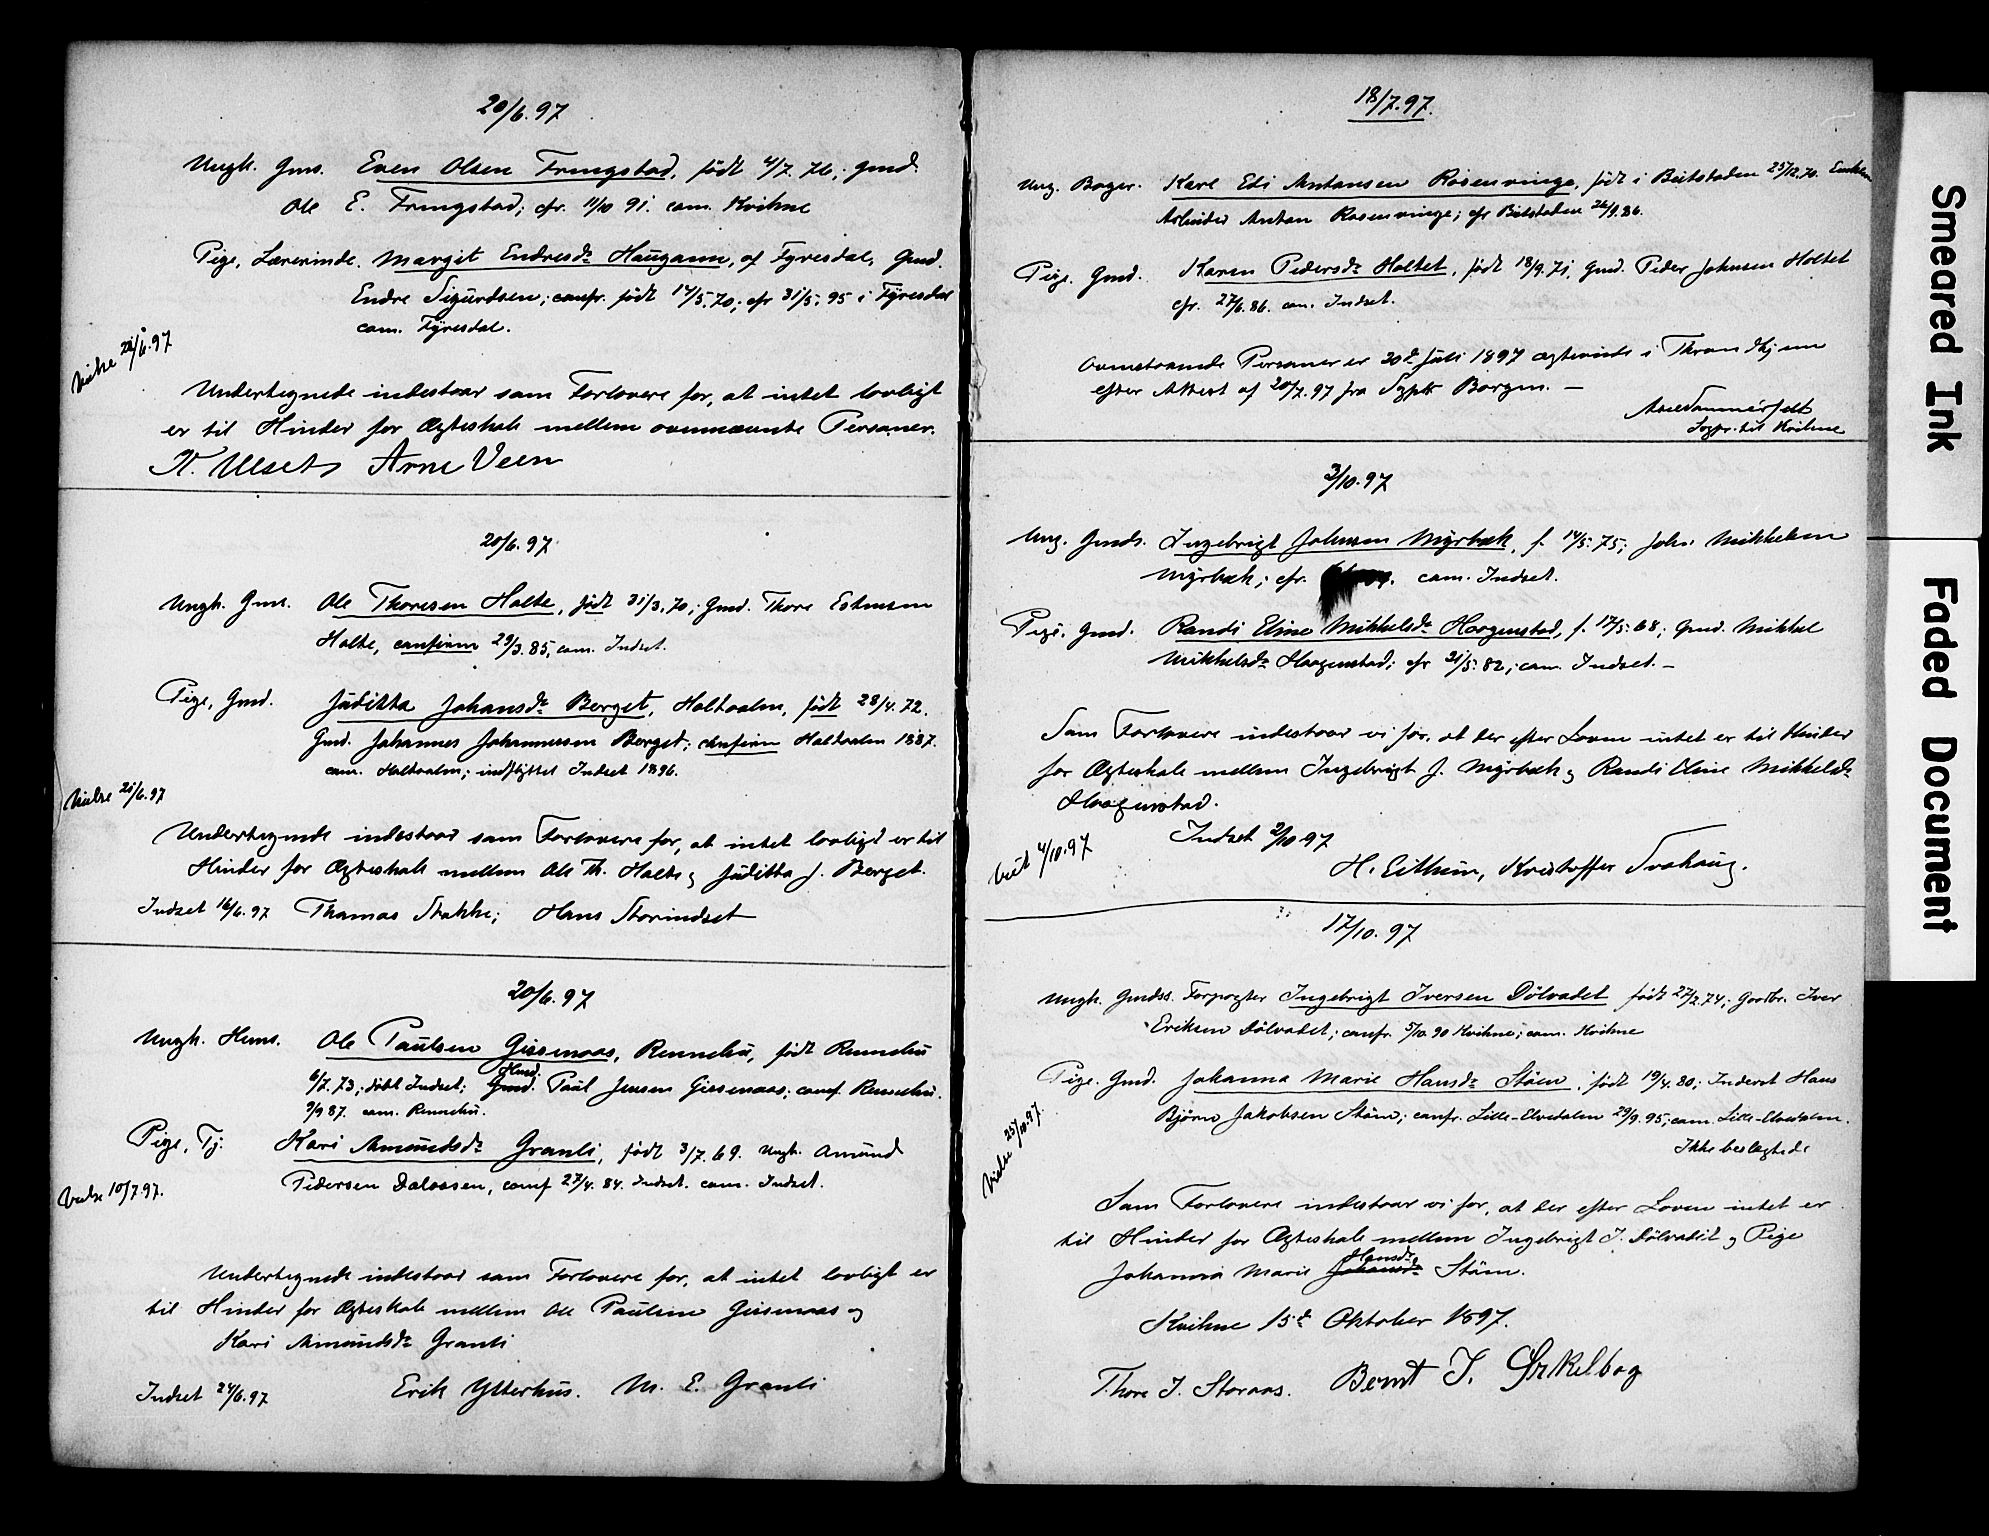 20/6.97
Ungk. Gms. Even Olsen Frengstad, født 4/7.76; Gmd.
Ole E. Frengstad; cfr. 11/10 91. com. Kvikne
Pige, Lærerinde. Margit Endresdr Haugann, af Fyresdal, Gmd.
Endre Sigurdsen; confr. født 14/5.70; cfr 31/5.95 i Fyresdal
com. Fyresdal.
Vielse 6.97
Undertegnede indestaar som Forlovere for, at intet lovligt
er til Hinder for Ægteskab mellem ovennævnte Personer.
K. Ulset Arne Veen
20/6.97
Ungk. Gms. Ole Thoresen Holte, født 31/3.70; Gmd. Thore Estensen
Holte, confirm 29/3.85, com. Indset.
Pige, Gmd. Juditta Johansdr Berget, Holtaalen, født 28/4.72.
Gmd. Johannes Johannessen Berget; confirm Holtaalen 1887.
com. Holtaalen; indflyttet Indset 1896.
Vielse 21/6.97
Undertegnede indestaar som Forlovere for, at intet lovligt er til
Hinder for Ægteskab mellem Ole Th. Holte og Juditta J. Berget.
Indset 16/6.97 Thomas Stakke; Hans Storindset
20/6.97
Ungk. Husms. Ole Paulsen Gissenaas, Rennebu, født Rennebu
6/7.73; døbt Indset; Gmd. Husd. Paul Jensen Gissenaas; conf. Rennebu.
9/9 87. com. Rennebu.
Pige, Tj. Kari Amundsdr Granli, født 3/7.69. Ungk. Amund
Pedersen Dalaasen, conf 27/4.84. Indset. com. Indset.
Vielse 10/7.97.
Undertegnede indestaar som Forlovere for, at intet lovligt er
til Hinder for Ægteskab mellem Ole Paulsen Gissenaas og
Kari Amundsdr Granli
Indset 24/6.97 Erik Ytterhus. M. E. Granli
18/7.97.
Ung. Bager. Karl Edi Antonsen Rosenvinge, født i Beitstaden 25/12.70.
Arbeider Anton Rosenvinge; cfr Beitstaden 26/9.86.
Pige. Gmd. Karen Pedersdr Holtet, født 18/9.71, Gmd. Peder Johnsen Holtet
cfr. 27/6.86. com. Indset.
Ovenstaaende Personer er 20de Juli 1897 ægteviede i Throndhjem
efter Attest af 20/7.97 fra Sgpr Borgen. —
Sommerfelt
Sogpr. til Kvikne
3/10.97
Ung. Gmds. Ingebrigt Johnsen Myrbæk, f. 14/5.75; John Mikkelsen
Myrbæk; cfr. com. Indset.
Pige. Gmd. Randi Eline Mikkelsdr Haagenstad, f. 17/5.68; Gmd. Mikkel
Mikkelsdr Haagenstad; cfr 31/5.82; com. Indset. —
Som Forlovere indestaar vi for, at der efter Loven intet er til Hinder
for Ægteskab mellem Ingebrigt J. Myrbæk og Randi Eline Mikkelsdr
Haagenstad.
Indset 2/10 97
Viet 4/10.97
H. Eithun, Kristoffer Svahaug.
17/10.97
Ungk. Gmdss. Forpagter Ingebrigt Iversen Dølvadet født 27/2.74; Gaardbr. Iver
Eriksen Dølvadet; confr. 5/10.90 Kvikne; com. Kvikne
Pige. Gmd. Johanna Marie Hansdr Støen; født 19/4.80; Inderst Hans
Bjørn Jakobsen Støen; confr. Lille-Elvedalen 29/9.95; com. Lille-Elvedalen.
Ikke beslægtede
Vielse 25/10.97.
Som Forlovere indestaar vi for, at der efter Loven intet er
til Hinder for Ægteskab mellem Ingebrigt I. Dølvadet og Pige
Johanna Marie Hansdr Støen.
Kvikne 15de Oktober 1897.
Thore J. Storaas. Bernt J. Ørkelbog
Smeared Ink
Faded Document